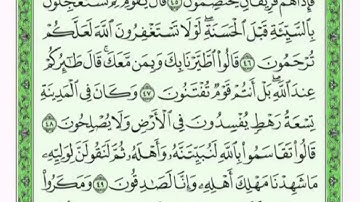 فَإِذَا هُمْ فَرِيقَانِ يَخْتَصِمُونَ ٤٥ قَالَ يَٰقَوْمِ لِمَ تَسْتَعْجِلُونَ
بِٱلسَّيِّئَةِ قَبْلَ ٱلْحَسَنَةِ ۖ لَوْلَا تَسْتَغْفِرُونَ ٱللَّهَ لَعَلَّكُمْ
تُرْحَمُونَ ٤٦ قَالُوا۟ ٱطَّيَّرْنَا بِكَ وَبِمَن مَّعَكَ ۚ قَالَ طَٰٓئِرُكُمْ
عِندَ ٱللَّهِ ۖ بَلْ أَنتُمْ قَوْمٌ تُفْتَنُونَ ٤٧ وَكَانَ فِى ٱلْمَدِينَةِ
تِسْعَةُ رَهْطٍ يُفْسِدُونَ فِى ٱلْأَرْضِ وَلَا يُصْلِحُونَ ٤٨
قَالُوا۟ تَقَاسَمُوا۟ بِٱللَّهِ لَنُبَيِّتَنَّهُۥ وَأَهْلَهُۥ ثُمَّ لَنَقُولَنَّ لِوَلِيِّهِۦ
مَا شَهِدْنَا مَهْلِكَ أَهْلِهِۦ وَإِنَّا لَصَٰدِقُونَ ٤٩ وَمَكَرُوا۟